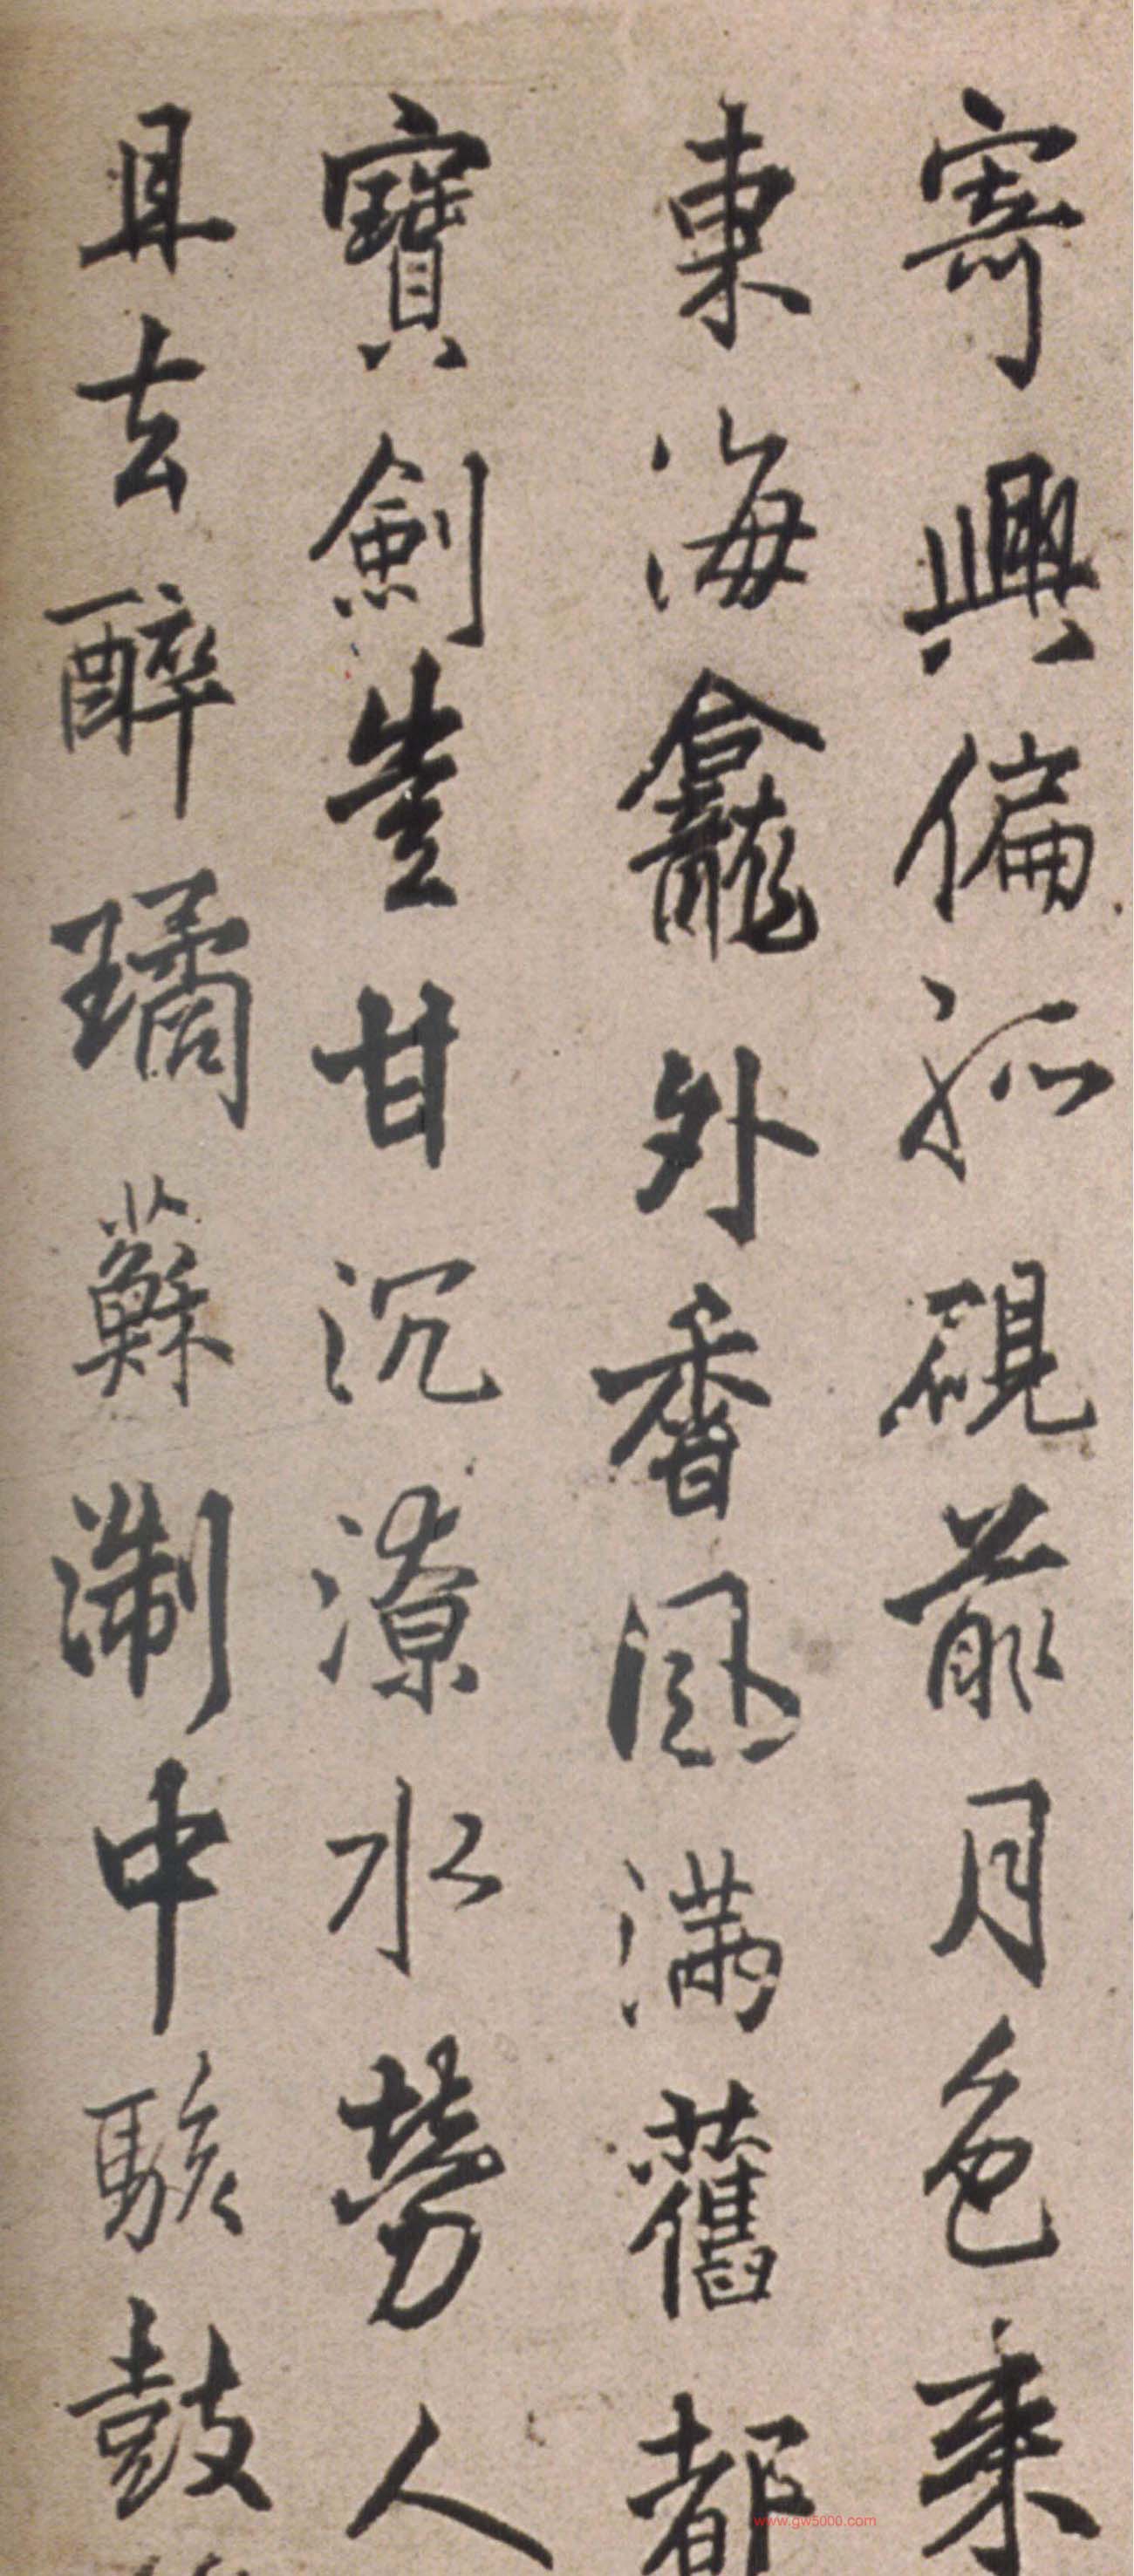 寄興偏孤硯前月色
東海龕外香風滿舊都
寶劍豈甘沉潦水勞人
且去醉璚蘇淛中駭鼓
www.gw5000.com